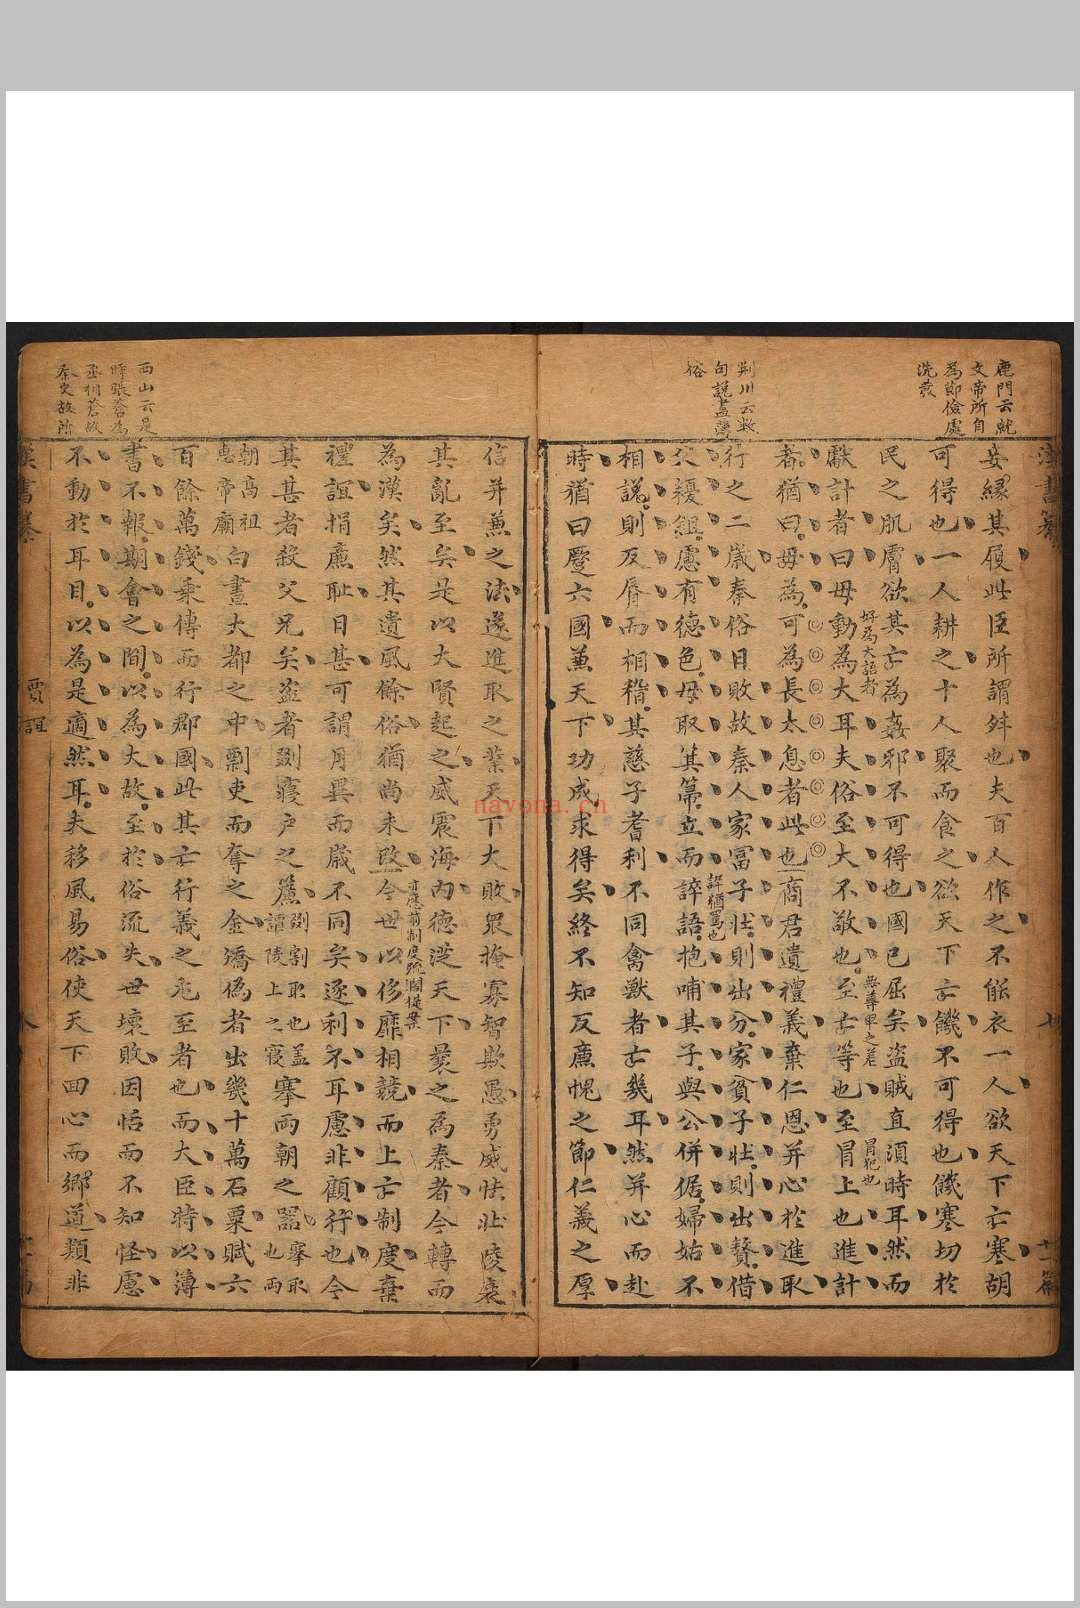 鹿門云就
文帝所自
為節儉處
洗發
荊川云數
句說盡薄
俗
妾緣其履此臣所謂舛也夫百人作之不能衣一人欲天下亡寒胡
可得也一人耕之十人聚而食之欲天下亡饑不可得也饑寒切於
民之肌膚欲其亡為姦邪不可得也國已屈矣盜賊直須時耳然而
獻計者曰毋動為大耳夫俗至大不敬也至亡等也至冒上也進計
好為大語者
無尊卑之差
冒犯也
者猶曰毋為可為長太息者此也商君遺禮義棄仁恩并心於進取
行之二歲秦俗日敗故秦人家富子壯則出分家貧子壯則出贅借
父耰鉏慮有德色母取箕箒立而誶語抱哺其子與公併倨婦姑不
誶猶罵也
相說則反脣而相稽其慈子耆利不同禽獸者亡幾耳然并心而赴
時猶曰蹷六國兼天下功成求得矣終不知反廉愧之節仁義之厚
信并兼之法遂進取之業天下大敗衆掩寡智欺愚勇威怯壯陵衰
其亂至矣是以大賢起之威震海內德從天下曩之為秦者今轉而
為漢矣然其遺風餘俗猶尚未改今世以侈靡相競而上亡制度棄
禮誼捐廉恥日甚可謂月異而歲不同矣逐利不耳慮非顧行也今
其甚者殺父兄矣盜者剟寢戶之簾剟割取也蓋譚陵上之寢搴兩朝之器搴取也兩
朝高祖惠帝廟白晝大都之中剽吏而奪之金矯偽者出幾十萬石粟賦六
百餘萬錢乘傳而行郡國此其亡行義之尤至者也而大臣特以簿
書不報期會之間以為大故至於俗流失世壞敗因恬而不知怪慮
不動於耳目以為是適然耳夫移風易俗使天下回心而鄉道類非
西山云是
時張蒼為
丞相蒼故
秦吏故所
賈誼
nayona.cn